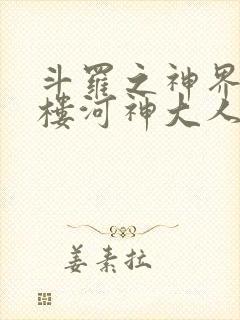 斗罗之神界
楼河神大人
姜素拉